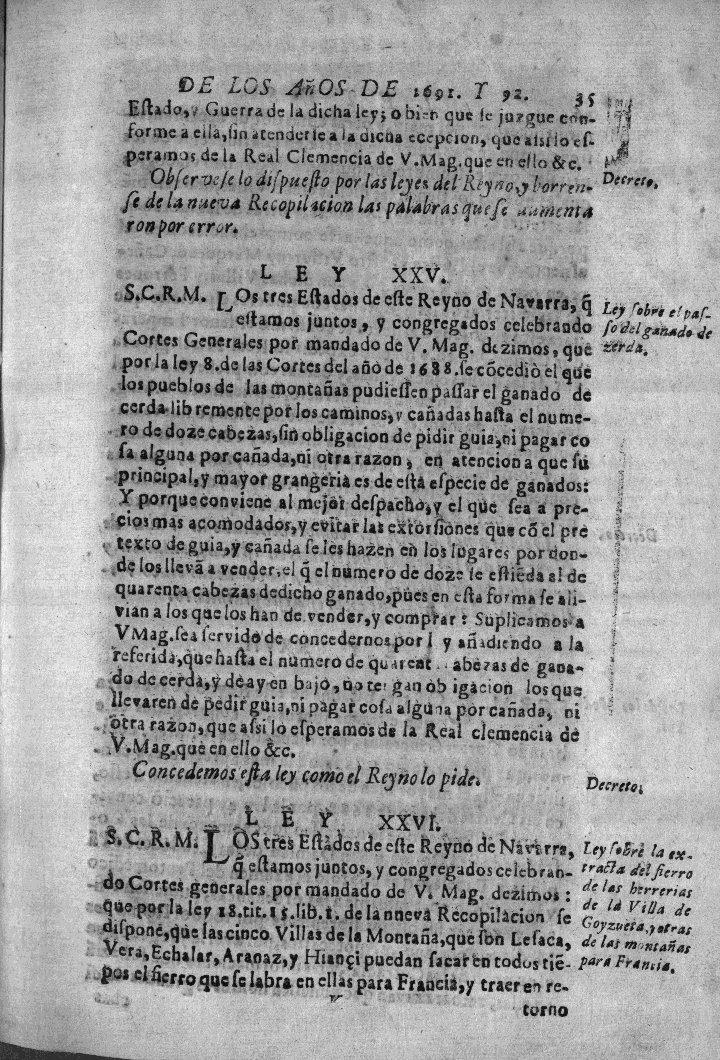 DE LOS AñOS DE 1691. Y 92. 35
Estado, y Guerra de la dicha ley; o bien que se juzgue con-
forme a ella, sin atenderse a la dicha ecepcion, que assi lo es-
peramos de la Real Clemencia de V. Mag. que en ello &c.
Observese lo dispuesto por las leyes del Reyno, y borren-
se de la nueva Recopilacion las palabras que se aumenta
ron por error.
Decreto.
LEY XXV.
S.C.R.M. LOs tres Estados de este Reyno de Navarra, q̃
estamos juntos, y congregados celebrando
Cortes Generales por mandado de V. Mag. dezimos, que
por la ley 8. de las Cortes del año de 1688. se cõcediò el que
los pueblos de las montañas pudiessen passar el ganado de
cerda libremente por los caminos, y cañadas hasta el nume-
ro de doze cabezas, sin obligacion de pidir guia, ni pagar co
sa alguna por cañada, ni otra razon, en atencion a que su
principal, y mayor grangeria es de esta especie de ganados:
Y porque conviene al mejor despacho, y el que sea a pre-
cios mas acomodados, y evitar las extorsiones que cõ el pre
texto de guia, y cañada se les hazen en los lugares por don-
de los llevã a vender, el q̃ el numero de doze se estiẽda al de
quarenta cabezas de dicho ganado, pues en esta forma se ali-
vian a los que los han de vender, y comprar: Suplicamos a
V Mag. sea servido de concedernos por l y añadiendo a la
referida, que hasta el numero de quarent abezas de gana-
do de cerda, y de ay en bajo, no tengan ob igacion los que
llevaren de pedir guia, ni pagar cosa alguna por cañada, ni
otra razon, que assi lo esperamos de la Real clemencia de
V. Mag. que en ello &c.
Concedemos esta ley como el Reyno lo pide.
Ley sobre el pas-
so del ganado de
zerda.
Decreto.
LEY XXVI.
S.C.R.M. LOS tres Estados de este Reyno de Navarra,
q̃ estamos juntos, y congregados celebran-
do Cortes generales por mandado de V. Mag. dezimos:
que por la ley 18. tit. 15. lib. 1. de la nneva Recopilacion se
dispone, que las cinco Villas de la Montaña, que son Lesaca,
Vera, Echalar, Aranaz, y Hiançi puedan sacar en todos tiẽ-
pos el fierro que se labra en ellas para Francia, y traer en re-
V
torno
Ley sobre la ex-
tracta del fierro
de las herrerias
de la Villa de
Goyzueta, y otras
de las montañas
para Francia.